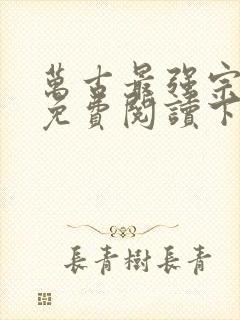 萬古最強宗
免費閱讀下
長青樹長青